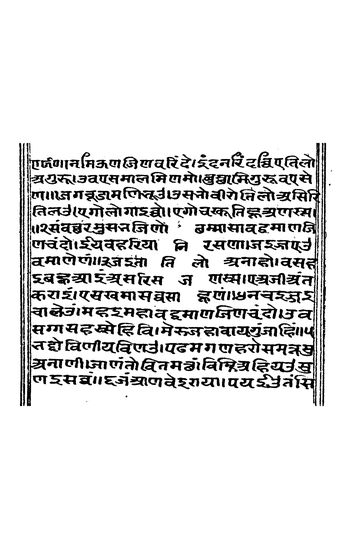 नमिऊण जिणवरिंदे । इंदनरिंदच्चिए तिलो
अगुरू । उवएसमालमिणमो । वुच्छामि गुरूवएसे
णं ॥१॥ जगचूडामणिभूउ । उसभो वीरो तिलोअसिरि
तिलउ । एगो लोगाइच्चो । एगो चक्खू तिहुअणस्स ।
॥२॥ संवच्छरमुसभजिणो छम्मासा वद्धमाणजि
णचंदो । इय विहरिया नि रसणा । जइज्ज
वमाणेणं ॥३॥ जइ ता ति लो अनाहो । विसह
इ बहुआइं असरिस ज णस्स । जीअंत
कराइं । एस खमा सव्वसा हूणं ॥४॥ न चइज्जइ
चालेउं । महइमहावद्धमाणजिणचंदो । उव
सग्गसहस्सेहिं वि । मेरु जहा वायगुंजाहिं ॥५॥ भ
द्दो विणीयविणउ । पढमगणहरो समत्तसु
अनाणी । जाणंतो वि तमत्थं । विम्हिअहियउ सु
णइ सव्वं ॥६॥ जं आणवेइ राया । पयइउ तं सि